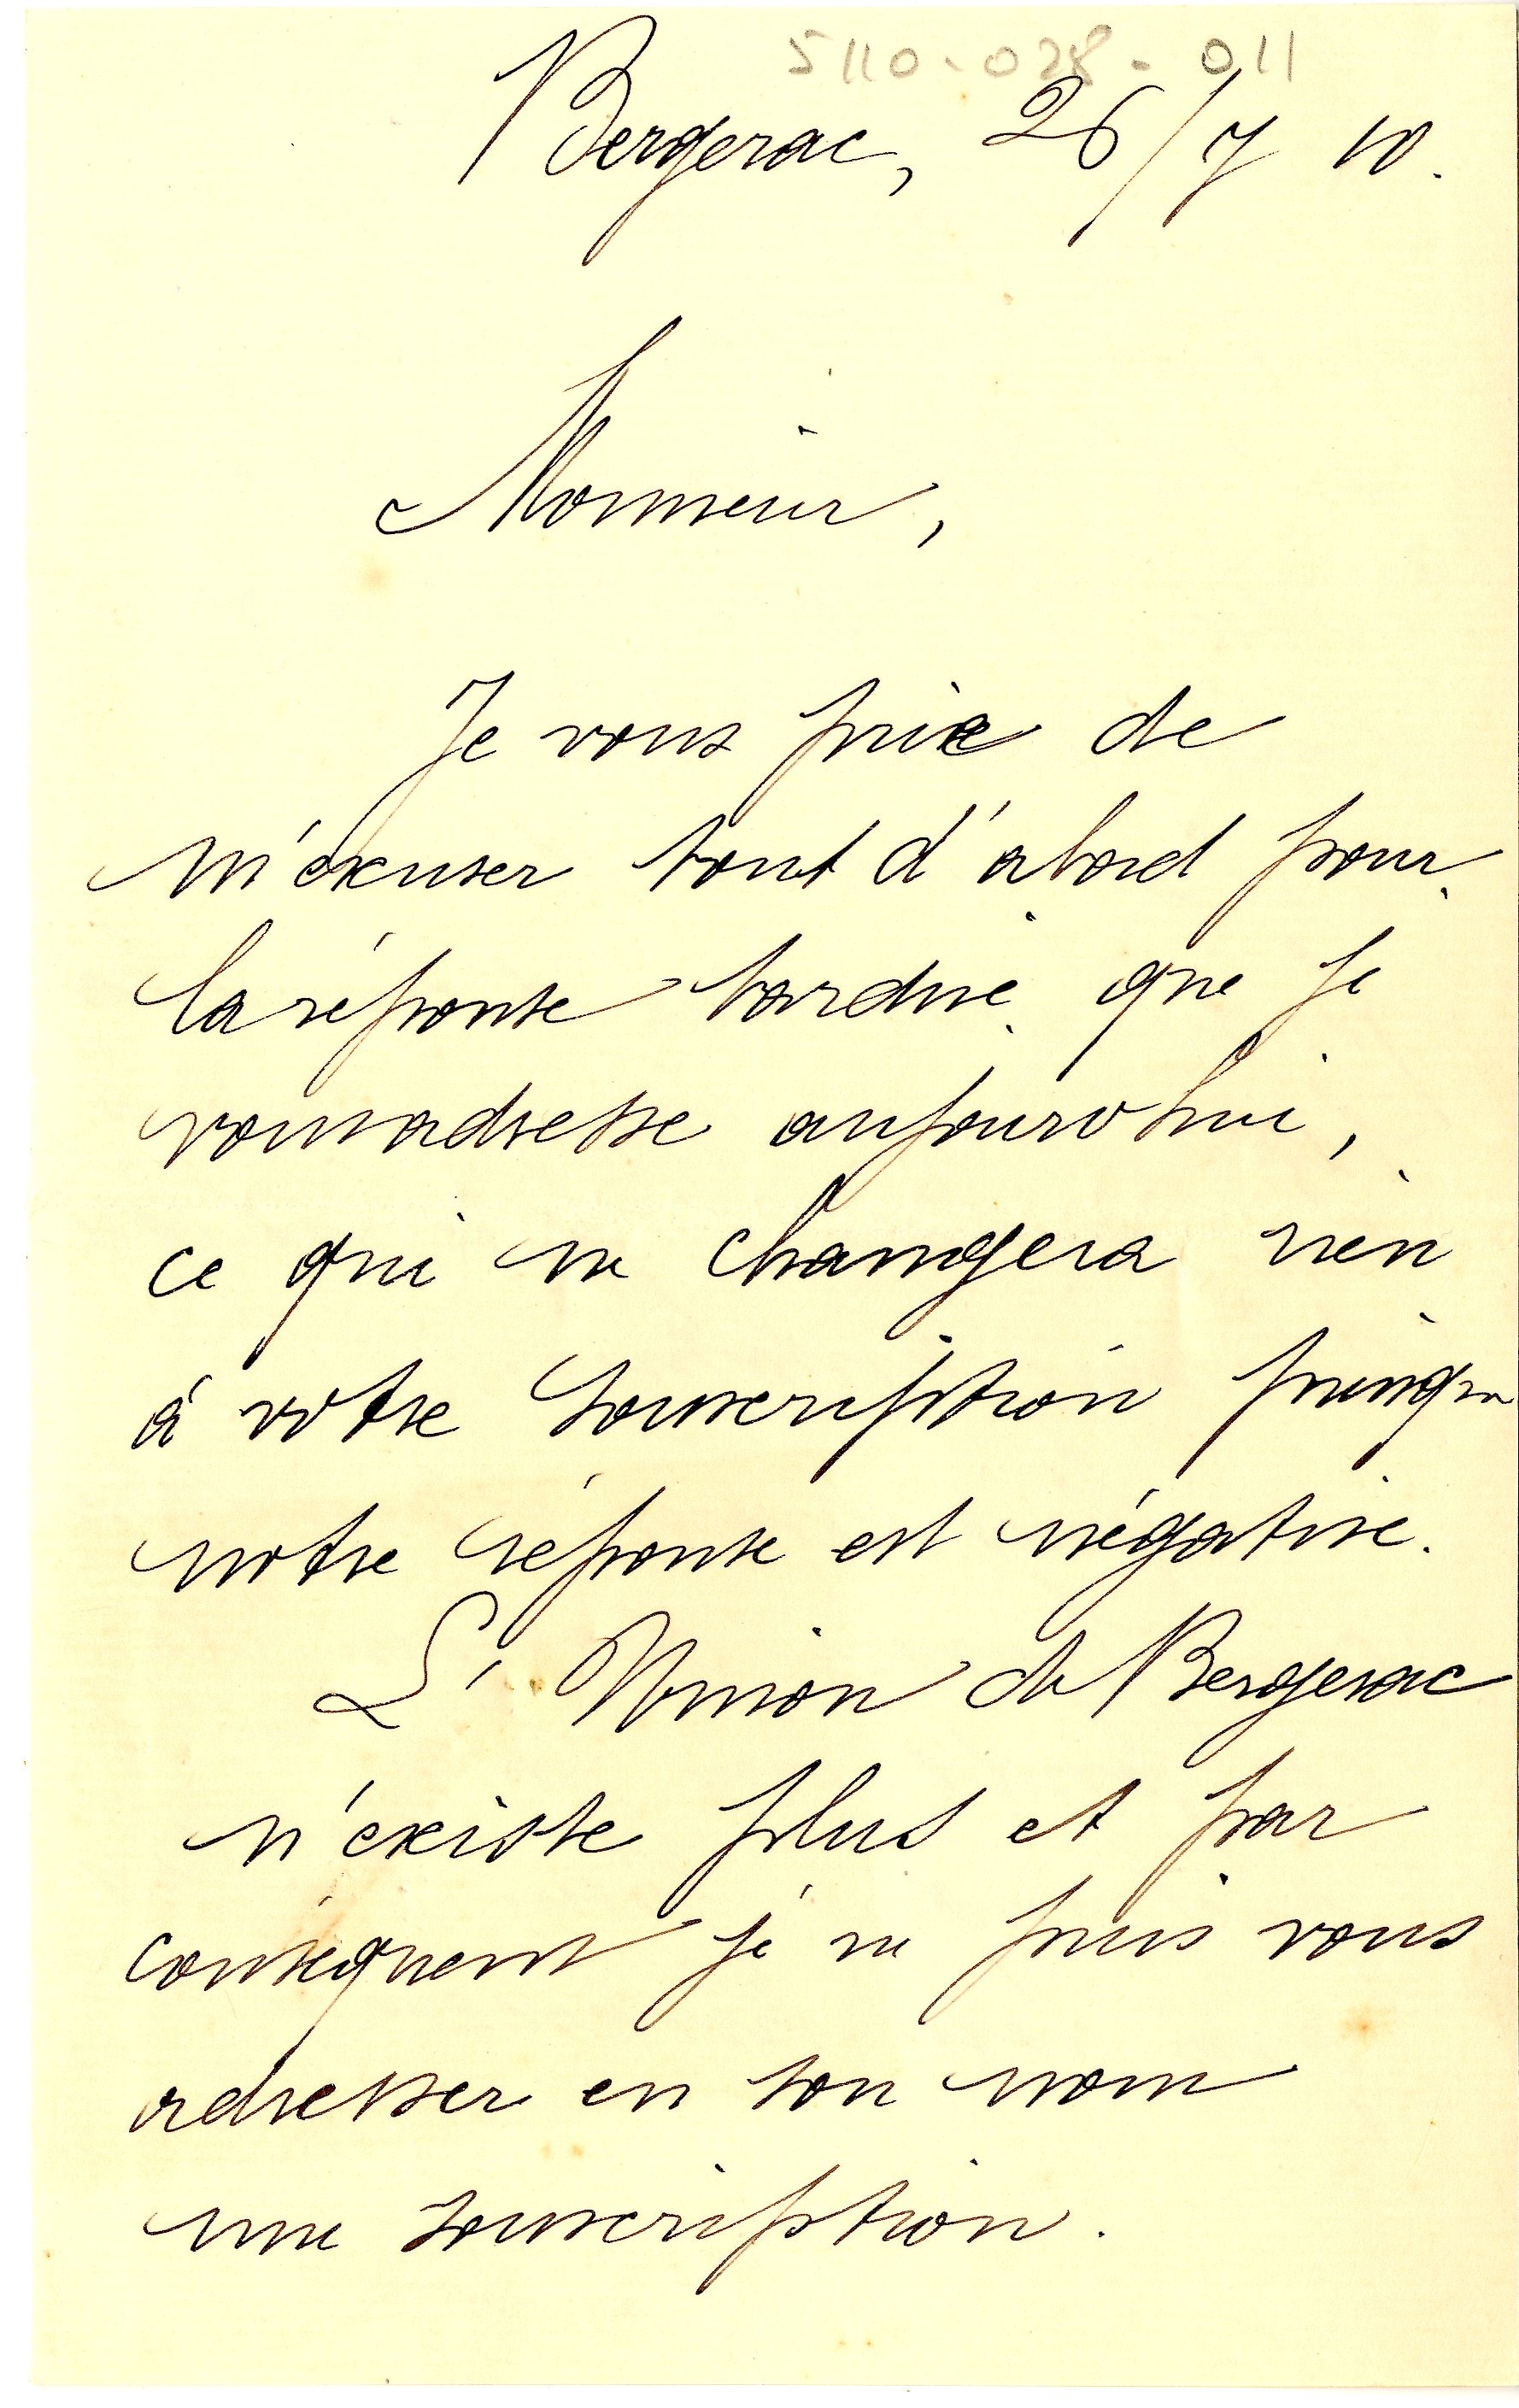 5110-028-011
Bergerac, 26/7 10.
Monsieur,
Je vous prie de
m'éxcuser tout d'abord pour
la réponse tardive que je
vous adresse aujourd'hui,
ce qui ne changera rien
à votre souscription puisque
notre réponse est négative.
L'Union de Bergerac
n'existe plus et par
conséquent je ne puis vous
adresser en son nom
une souscription.